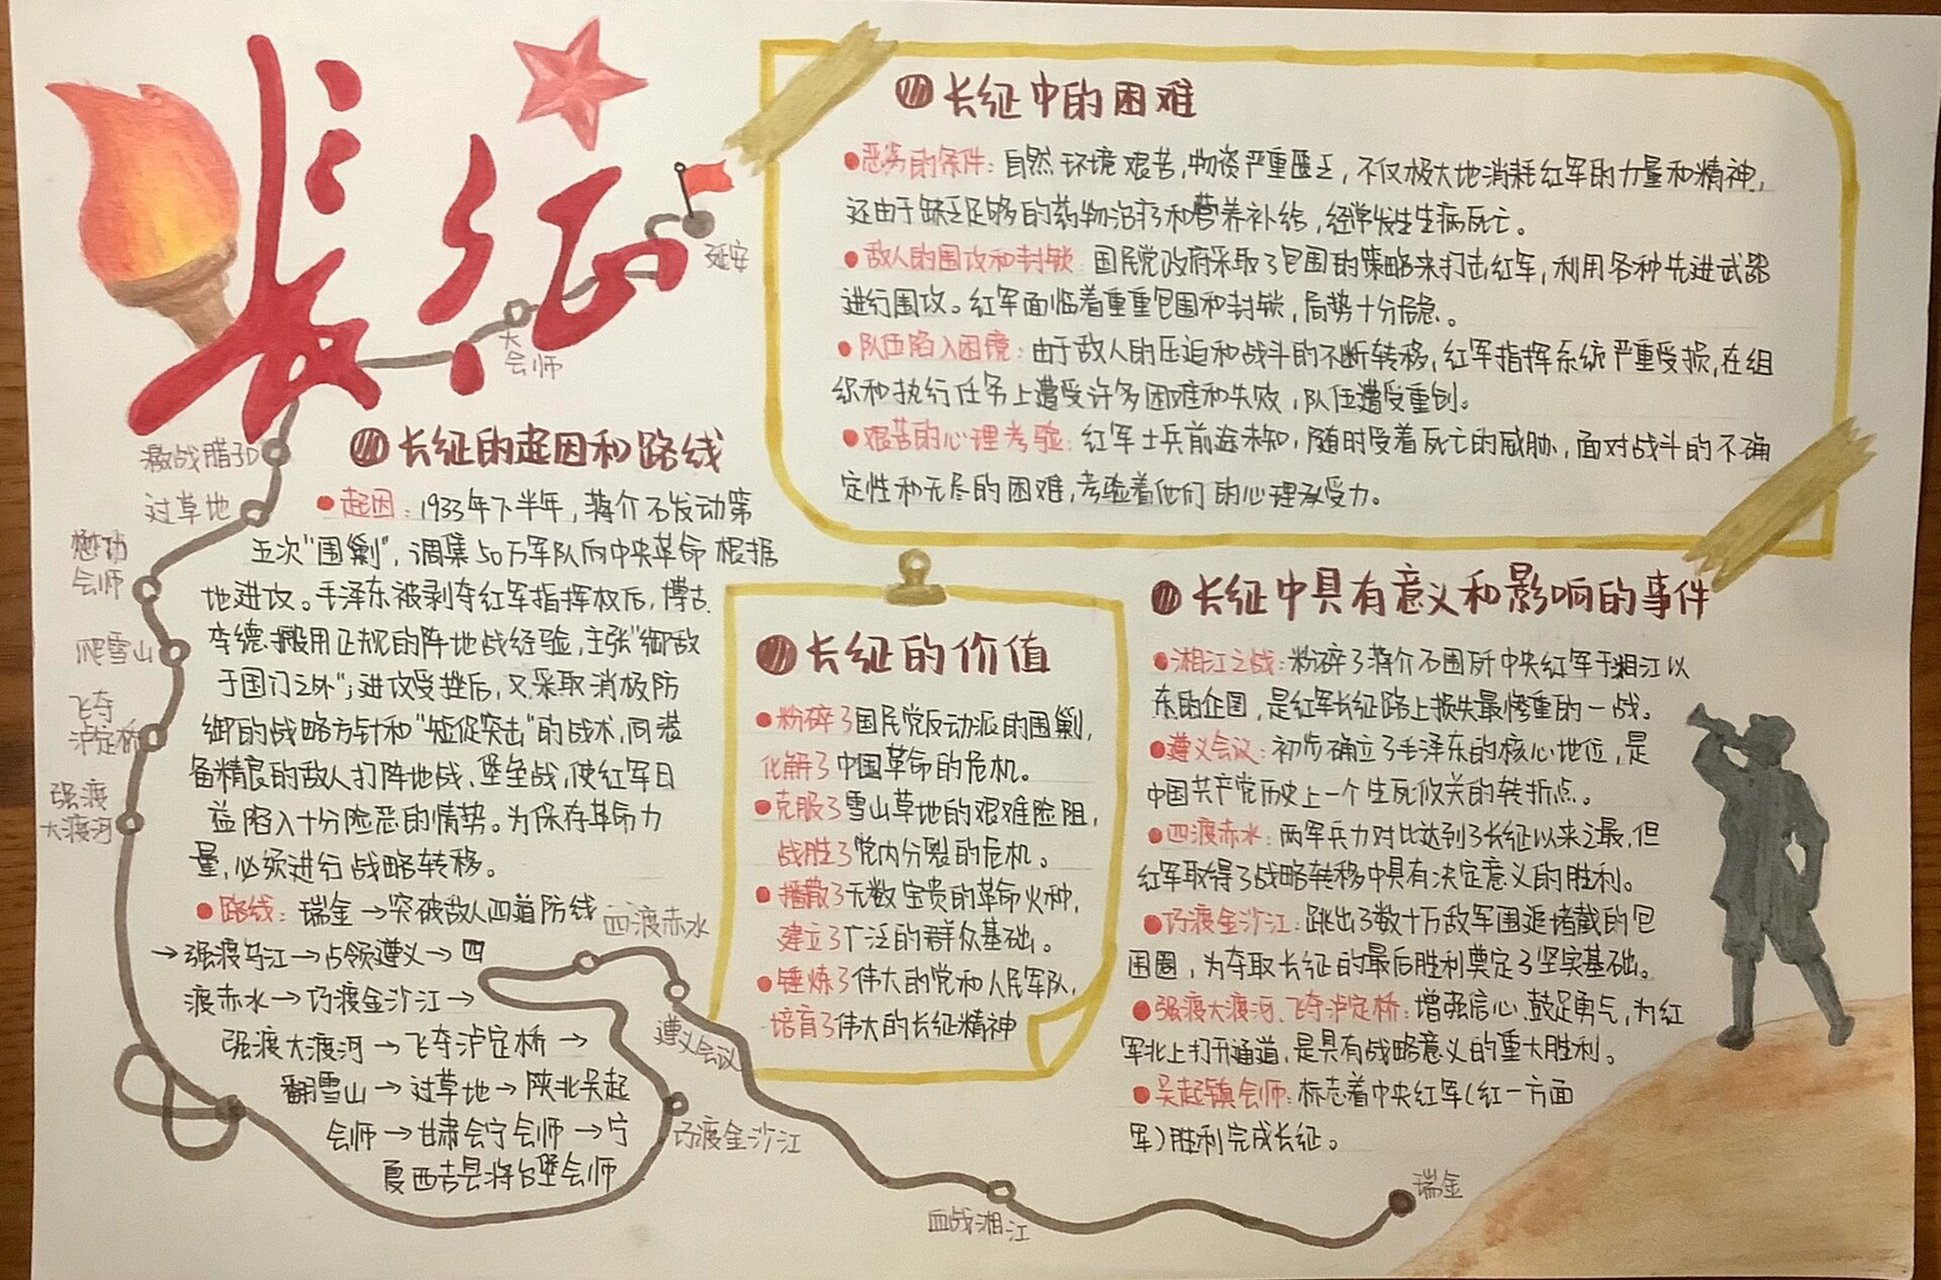 长征
延安
大
会师
激战腊子口
过草地
懋功
会师
爬雪山
飞夺
泸定桥
强渡
大渡河
长征的起因和路线
起因：1933年下半年，蒋介石发动第
五次“围剿”，调集50万军队向中央革命根据
地进攻。毛泽东被剥夺红军指挥权后，博古.
李德搬用正规的阵地战经验，主张“御敌
于国门之外”；进攻受挫后，又采取消极防
御的战略方针和“短促突击”的战术，同装
备精良的敌人打阵地战、堡垒战，使红军日
益陷入十分险恶的情势。为保存革命力
量，必须进行战略转移。
路线：瑞金→突破敌人四道防线
→强渡乌江→占领遵义→四
渡赤水→巧渡金沙江→
强渡大渡河→飞夺泸定桥→
翻雪山→过草地→陕北吴起
会师→甘肃会宁会师→宁
夏西吉县将台堡会师
四渡赤水
遵义会议
巧渡金沙江
血战湘江
瑞金
长征中的困难
恶劣的条件：自然环境艰苦，物资严重匮乏，不仅极大地消耗红军的力量和精神，
还由于缺乏足够的药物治疗和营养补给，经常发生生病死亡。
敌人的围攻和封锁：国民党政府采取了包围的策略来打击红军，利用各种先进武器
进行围攻。红军面临着重重包围和封锁，局势十分危急。
队伍陷入困境：由于敌人的压迫和战斗的不断转移，红军指挥系统严重受损，在组
织和执行任务上遭受许多困难和失败，队伍遭受重创。
艰苦的心理考验：红军士兵前途未知，随时受着死亡的威胁，面对战斗的不确
定性和无尽的困难，考验着他们的心理承受力。
长征的价值
粉碎了国民党反动派的围剿，
化解了中国革命的危机。
克服了雪山草地的艰难险阻，
战胜了党内分裂的危机。
播散了无数宝贵的革命火种，
建立了广泛的群众基础。
锤炼了伟大的党和人民军队，
培育了伟大的长征精神
长征中具有意义和影响的事件
湘江之战：粉碎了蒋介石围歼中央红军于湘江以
东的企图，是红军长征路上损失最惨重的一战。
遵义会议：初步确立了毛泽东的核心地位，是
中国共产党历史上一个生死攸关的转折点。
四渡赤水：两军兵力对比达到了长征以来之最，但
红军取得了战略转移中具有决定意义的胜利。
巧渡金沙江：跳出了数十万敌军围追堵截的包
围圈，为夺取长征的最后胜利奠定了坚实基础。
强渡大渡河、飞夺泸定桥：增强信心、鼓足勇气，为红
军北上打开通道，是具有战略意义的重大胜利。
吴起镇会师：标志着中央红军（红一方面
军）胜利完成长征。